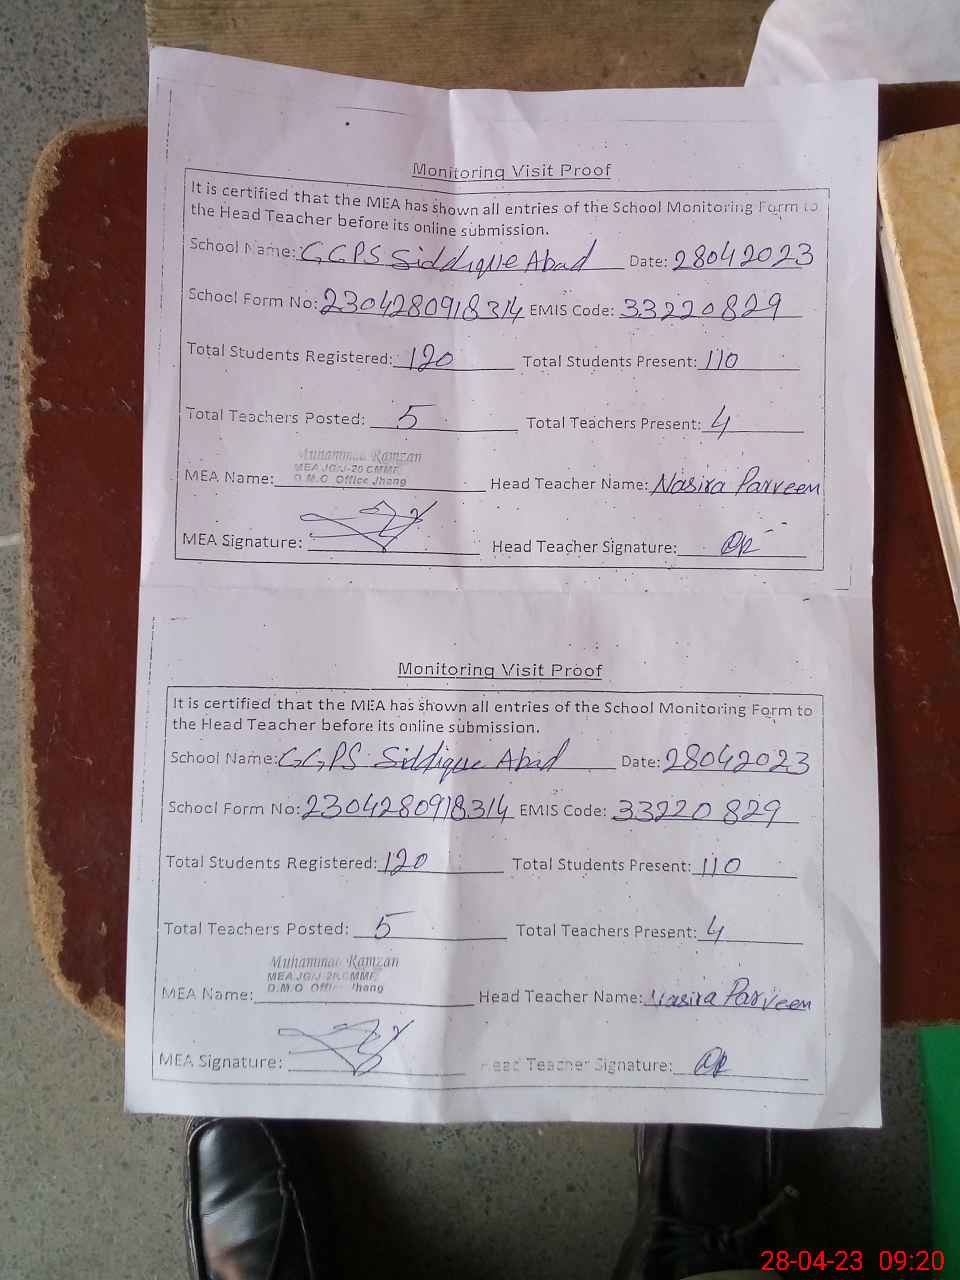 Monitoring Visit Proof
It is certified that the MEA has shown all entries of the School Monitoring Form to
the Head Teacher before its online submission.
School Name: GGPS Siddique Abad Date: 28042023
School Form No: 2304280918314 EMIS Code: 33220829
Total Students Registered: 120 Total Students Present: 110
Total Teachers Posted: 5 Total Teachers Present: 4
Muhammad Ramzan
MEA JG/J-20 CMMF
D.M.O Office Jhang
MEA Name: Head Teacher Name: Nasira Parveen
MEA Signature: Head Teacher Signature:
Monitoring Visit Proof
It is certified that the MEA has shown all entries of the School Monitoring Form to
the Head Teacher before its online submission.
School Name: GGPS Siddique Abad Date: 28042023
School Form No: 2304280918314 EMIS Code: 33220829
Total Students Registered: 120 Total Students Present: 110
Total Teachers Posted: 5 Total Teachers Present: 4
Muhammad Ramzan
MEA JG/J-20 CMMF
D.M.O Office Jhang
MEA Name: Head Teacher Name: Nasira Parveen
MEA Signature: Head Teacher Signature:
28-04-23 09:20